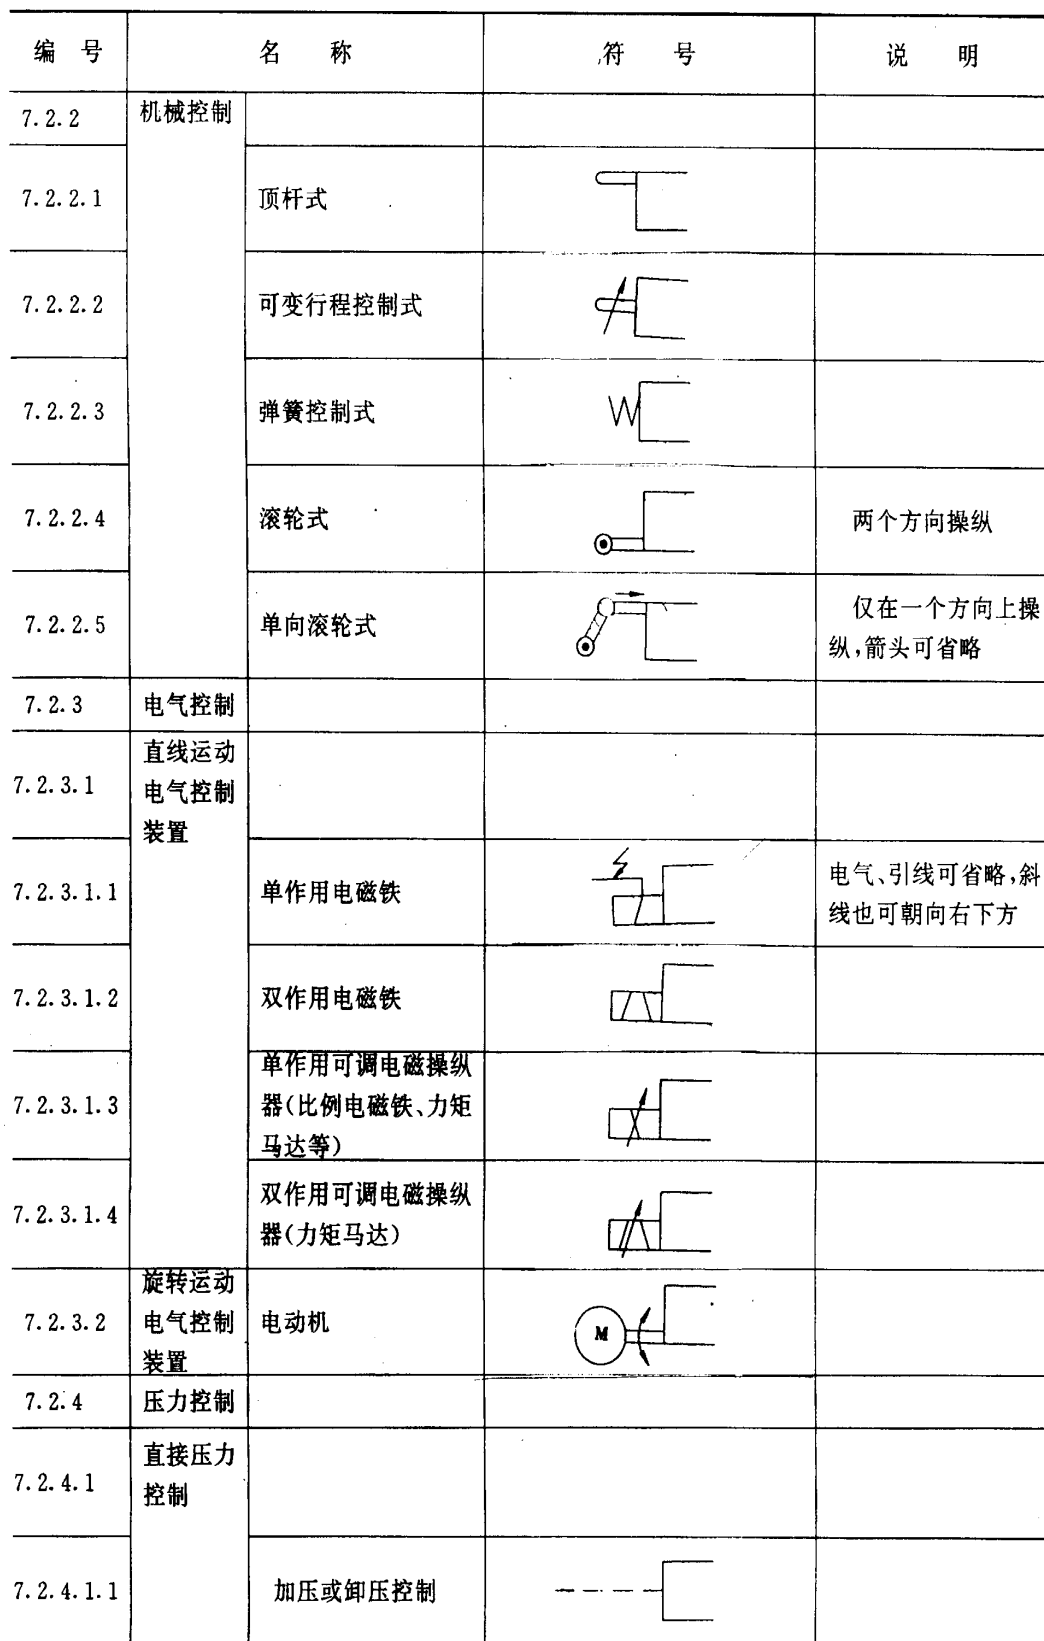 编 号 名 称 符 号 说 明
7.2.2 机械控制
7.2.2.1 顶杆式
7.2.2.2 可变行程控制式
7.2.2.3 弹簧控制式
7.2.2.4 滚轮式 两个方向操纵
7.2.2.5 单向滚轮式 仅在一个方向上操
纵,箭头可省略
7.2.3 电气控制
7.2.3.1 直线运动
电气控制
装置
7.2.3.1.1 单作用电磁铁 电气、引线可省略,斜
线也可朝向右下方
7.2.3.1.2 双作用电磁铁
7.2.3.1.3 单作用可调电磁操纵
器(比例电磁铁、力矩
马达等)
7.2.3.1.4 双作用可调电磁操纵
器(力矩马达)
7.2.3.2 旋转运动
电气控制
装置
电动机
M
7.2.4 压力控制
7.2.4.1 直接压力
控制
7.2.4.1.1 加压或卸压控制